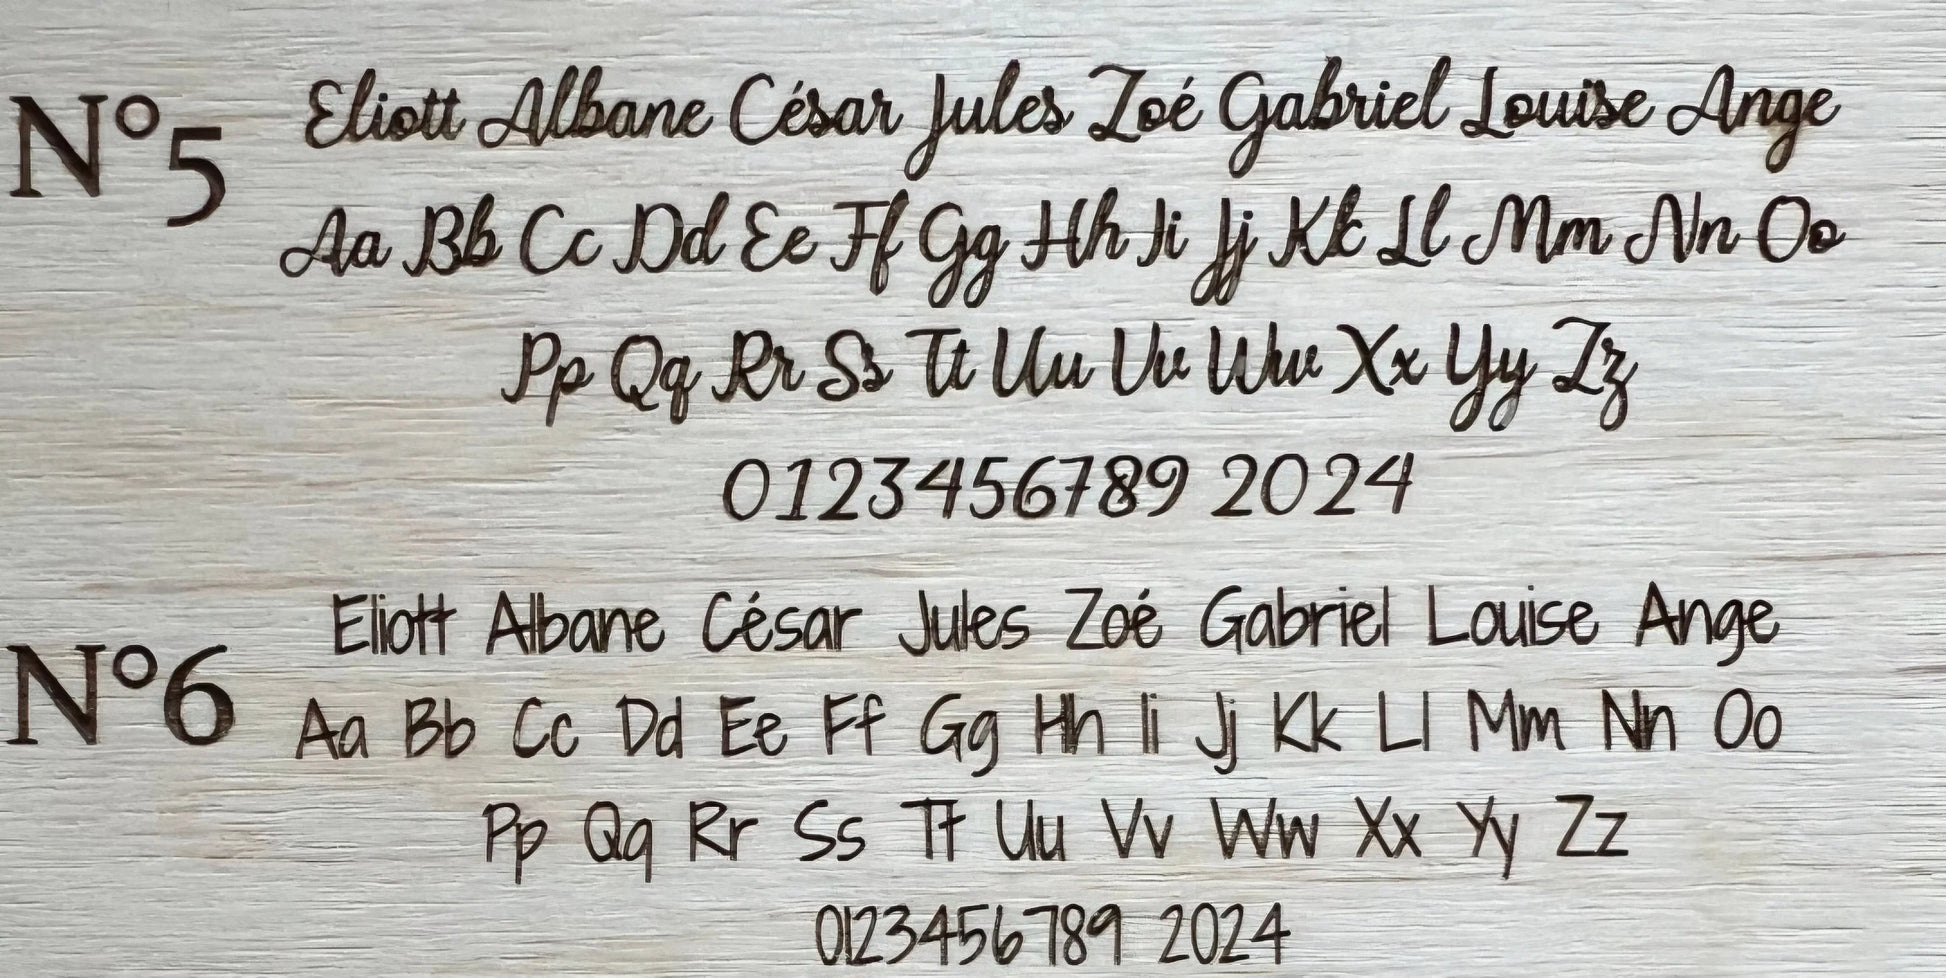 N°5
Eliott Albane César Jules Zoé Gabriel Louise Ange
Aa Bb Cc Dd Ee Ff Gg Hh Ii Jj Kk Ll Mm Nn Oo
Pp Qq Rr Ss Tt Uu Vv Ww Xx Yy Zz
0123456789 2024
N°6
Eliott Albane César Jules Zoé Gabriel Louise Ange
Aa Bb Cc Dd Ee Ff Gg Hh Ii Jj Kk Ll Mm Nn Oo
Pp Qq Rr Ss Tt Uu Vv Ww Xx Yy Zz
0123456789 2024